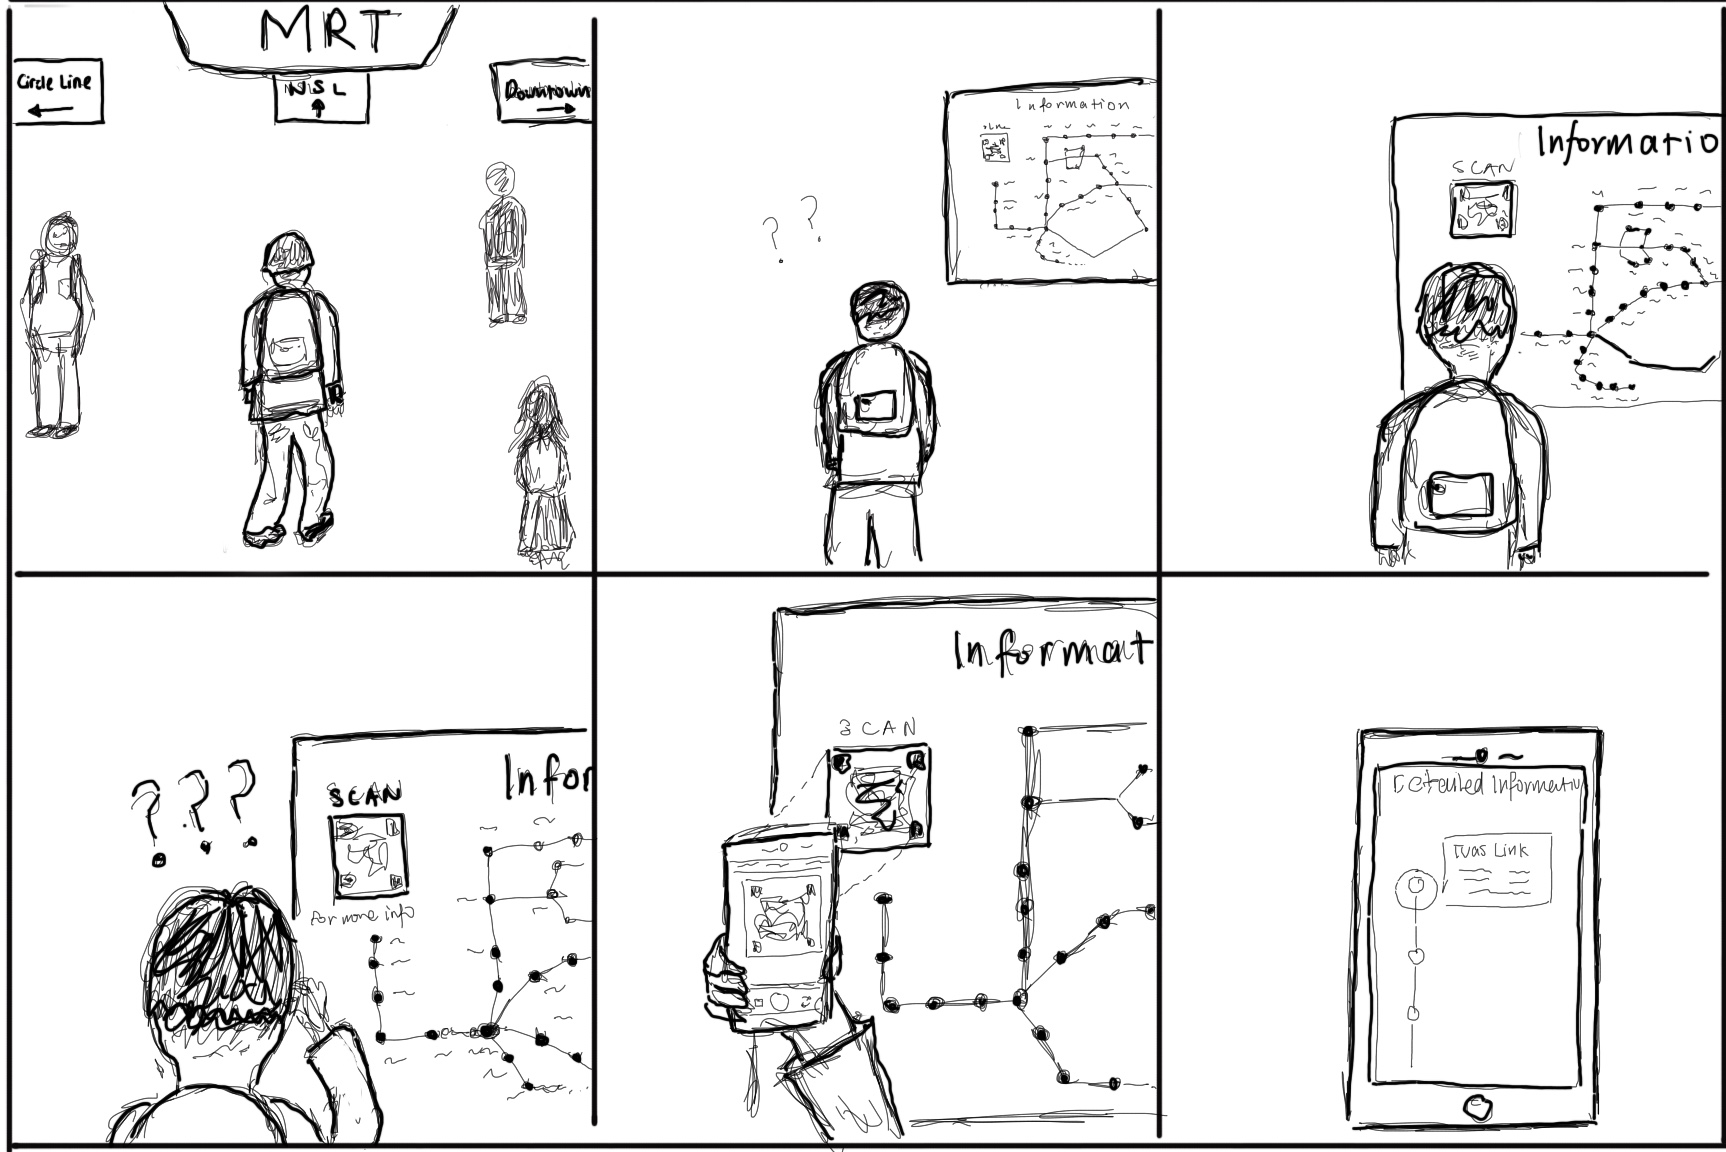 MRT
Circle Line
NSL
Downtown
? ?
Information
Informatio
SCAN
? ? ?
Infor
SCAN
For more info
Informat
SCAN
Detailed Informatio
Link